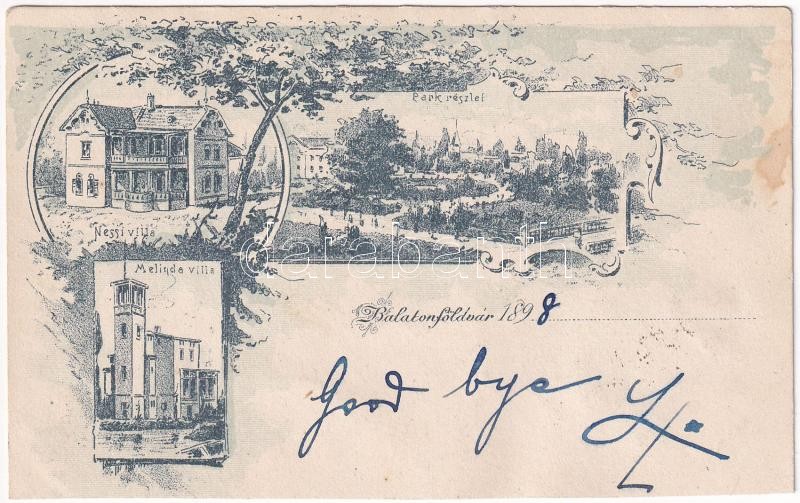 Park részlet
Nessi villa
Melinda villa
Balatonföldvár 1898
Good bye
darabanth